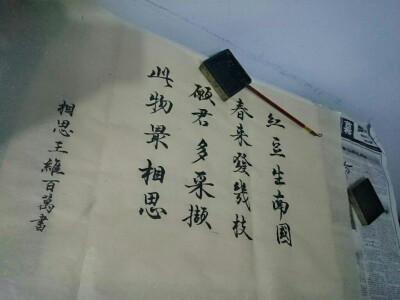 红豆生南國
春来發幾枝
願君多采擷
此物最相思
相思王維百萬書